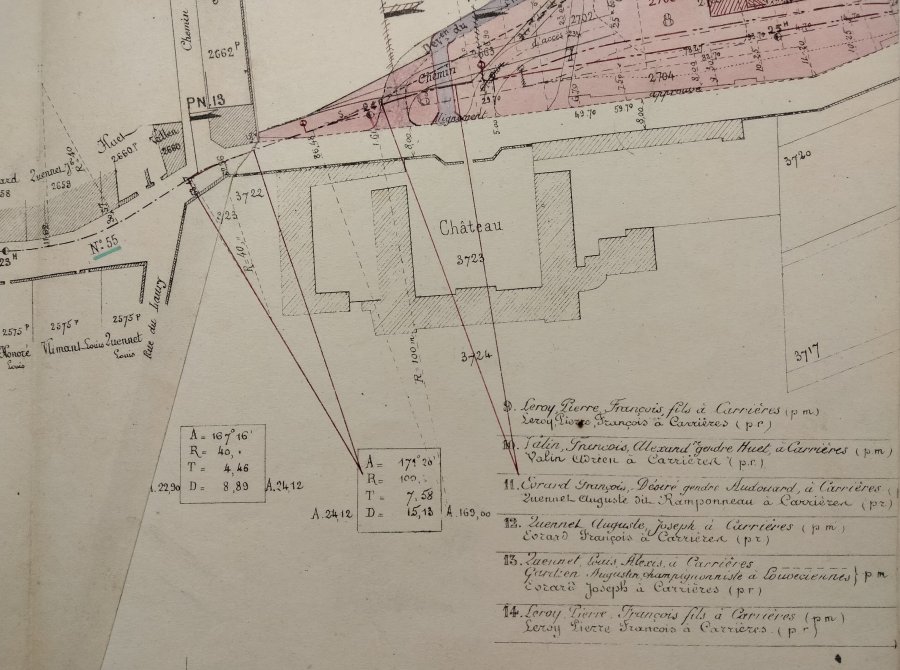 Chemin
2662 P
PN.13
Huet
2660 P
Vallen
2660
Quennet
2659
58
N° 55
23 H
2702
8
d'accès
2704
approuvé
Chemin
Mégissement
29.70
49.70
59.70
5.00
8.00
8.00
3722
R = 40
R = 100 m
Château
3723
3724
3720
3717
2575 P
2575 P
2575 P
Honoré
Louis
Vlimant-Louis
Quennet
Louis
Rue du Laury
A = 167° 16'
R = 40, "
T = 4.46
D = 8,89
A. 22,90
A. 24,12
A = 171° 20'
R = 100, "
T = 7.58
D = 15,13
A. 24,12
A. 169,00
9. Leroy, Pierre, François, fils à Carrières (p m)
Leroy Pierre, François à Carrières (p r)
10. Valin, François, Alexandre gendre Huet, à Carrières (p m)
Valin Adrien à Carrières (p.r)
11. Evrard François, Désiré gendre Audouard, à Carrières (
Quennet Auguste dit Ramponneau à Carrières (p r)
12. Quennet Auguste, Joseph à Carrières (p m)
Evrard François à Carrières (p r)
13. Quennet, Louis, Alexis, à Carrières
Augustin, champignonniste à Louveciennes } p m
Evrard Joseph à Carrières (p r)
14. Leroy, Pierre, François fils à Carrières (p m)
Leroy Pierre François à Carrières. (p r)